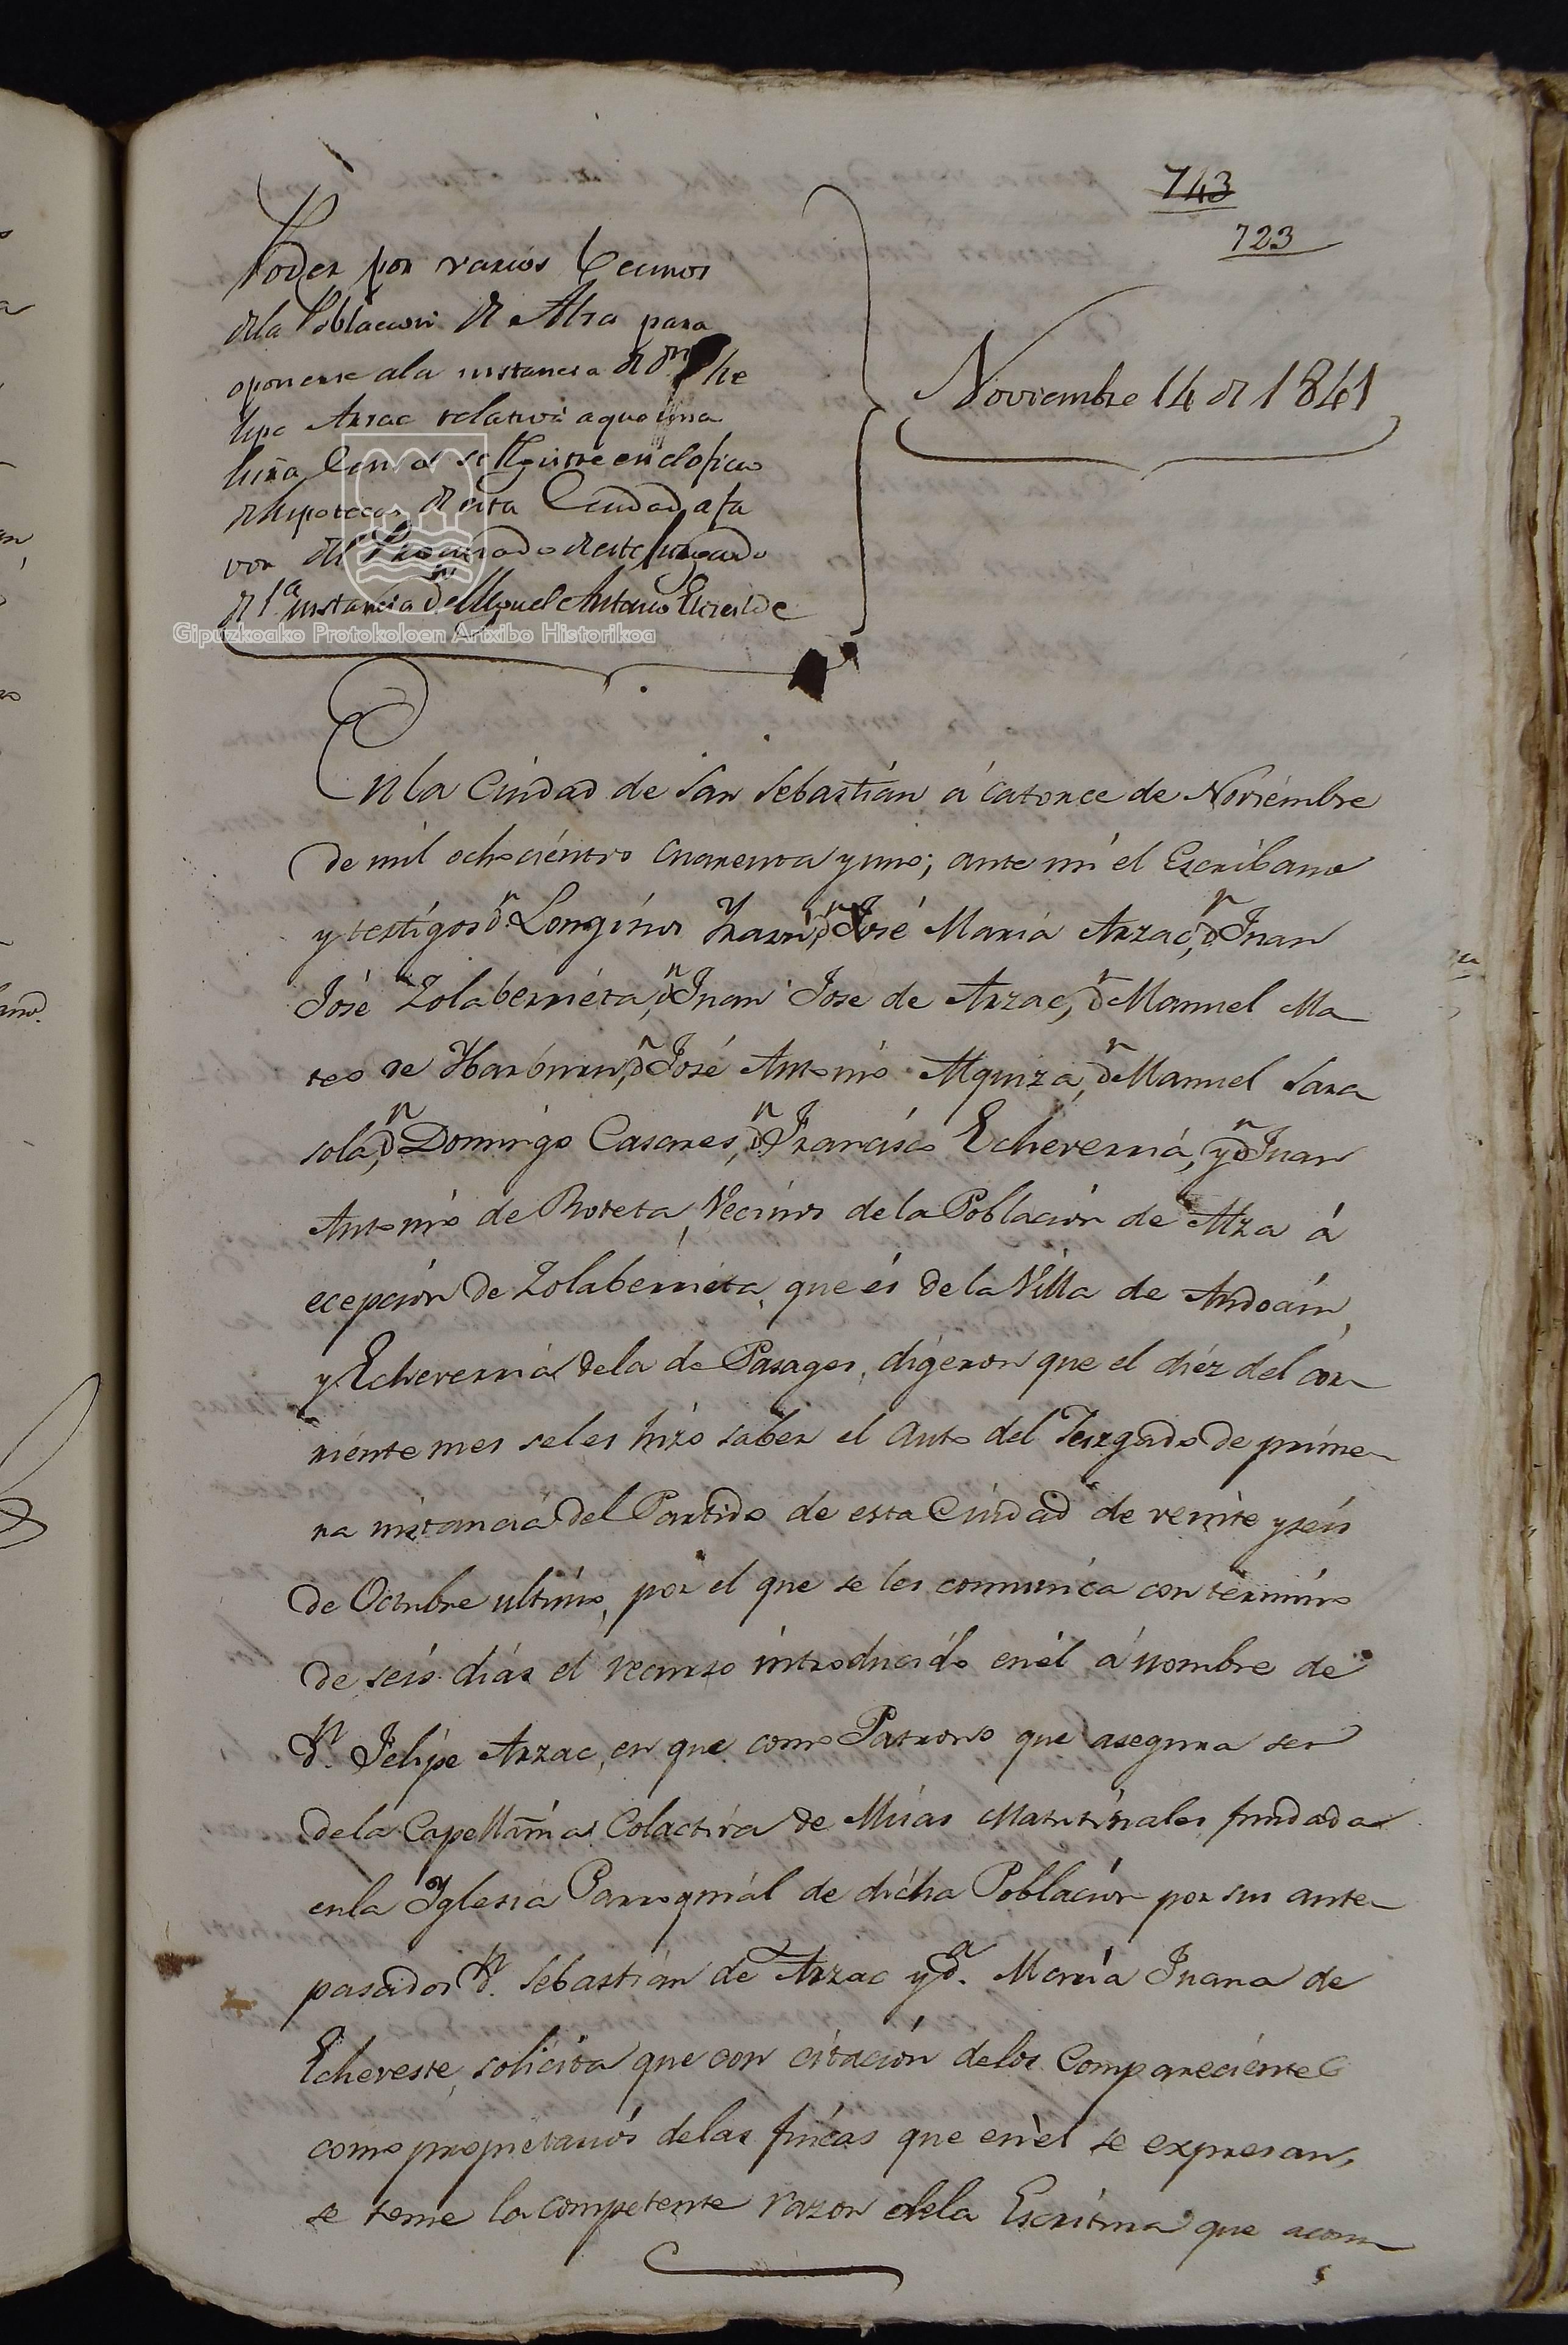 743
723
Poder por varios Vecinos
dela Poblacion de Alza para
oponerse ala instancia de Dn Phe
lipe Arzac relativa a que una
de hipotecas de esta Ciudad a fa
vor del Procurador de este Juzgado
de 1a instancia Dn Miguel Antonio
Noviembre 14 de 1841
Gipuzkoako Protokoloen Artxibo Historikoa
En la Ciudad de San Sebastián á catorce de Noviembre
de mil ochocientos cuarenta y uno; ante mi el Escribano
y testigos dn Longinos dn José María Arzac, dn Juan
José Zolaberrieta, dn Juan José de Arzac, dn Manuel Ma
teo de dn José Antonio Alquiza, dn Manuel Sara
sola, dn Domingo Casares, dn Francisco Echeverria, y dn Juan
Antonio de Roteta, Vecinos de la Población de Alza á
ecepción de Zolaberrieta, que és de la Villa de Andoáin,
y Echeverria dela de Pasages, digeron que el diéz del cor
riente mes se les hizo saber el auto del Juzgado de prime
ra instancia del Partido de esta Ciudad de veinte y seis
de Octubre ultimo, por el que se les comunica con término
de seis dias el recurso introducido en él á nombre de
Dn Felipe Arzac, en que como Patrono que asegura ser
dela Capellanía Colactiva de Misas Matutinales fundada
en la Iglesia Parroquial de dicha Población por sus ante
pasados Dn Sebastián de Arzac y da. María Juana de
Echeveste, solicita que con citación delos Comparecientes
como propietarios delas fincas que en él se expresan,
se tome la competente razon dela Escritura que acom